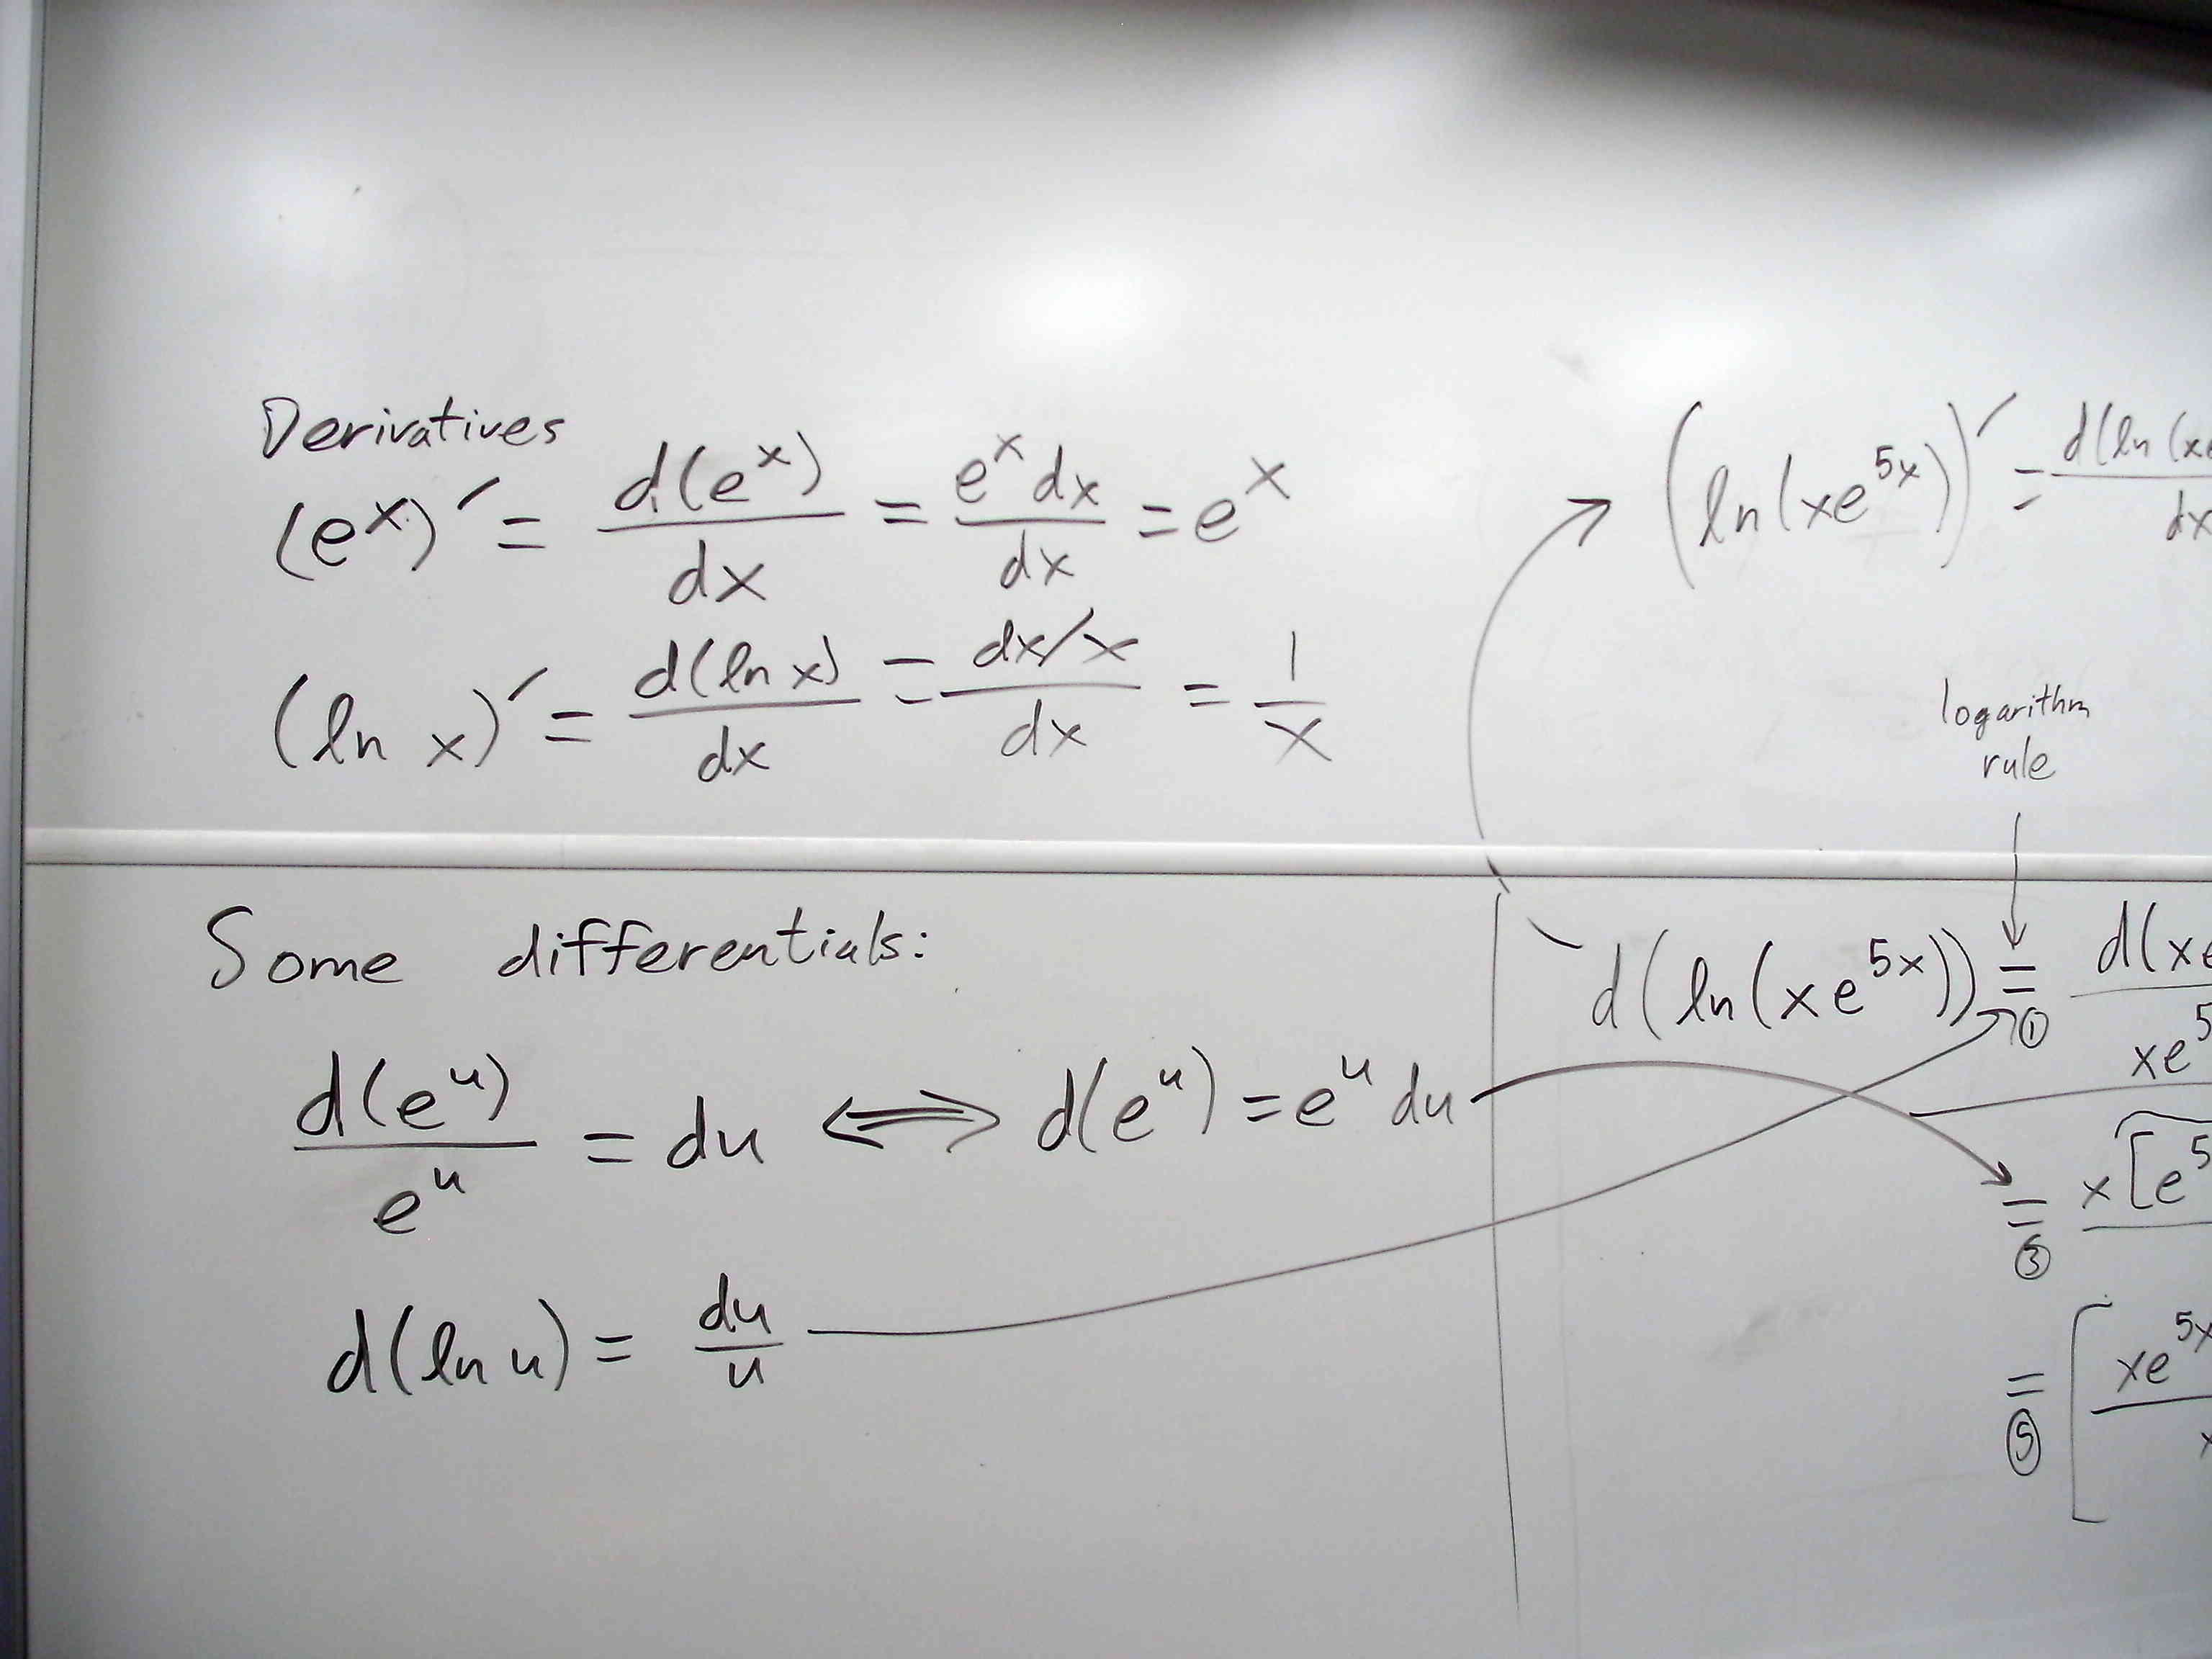 Derivatives
(e^x)′ = d(e^x)/dx = e^x dx/dx = e^x
(ln x)′ = d(ln x)/dx = dx/x/dx = 1/x
(ln(xe^5x))′ = d(ln(xe/dx
logarithm
rule
Some differentials:
d(e^u)/e^u = du ⟺ d(e^u) = e^u du
d(ln u) = du/u
d(ln(xe^5x)) = ① d(xe/xe^5
= ③ x[e^5
= ⑤ [xe^5x/x